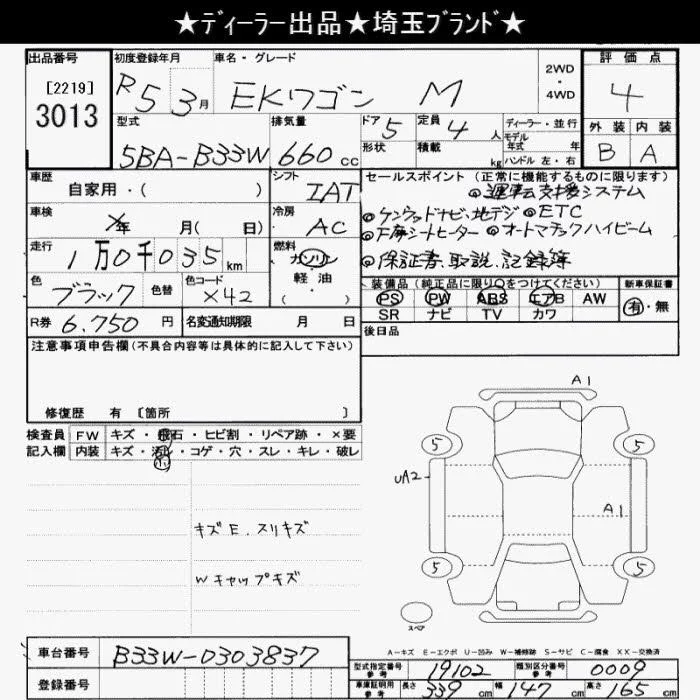 ★ディーラー出品★埼玉ブランド★
出品番号 初度登録年月 車名・グレード 2WD・4WD 評価点
[2219]
3013 R5 3月 EKワゴン M 4
型式 排気量 ドア 5 定員 4人 ディーラー・並行 外装 内装
形状 積載 kg モデル年式 年 ハンドル 左・右 B A
5BA-B33W 660cc
車歴 自家用・( ) シフト IAT セールスポイント (正常に機能するものに限ります)
◎運転支援システム
車検 ×年 月( 日) 冷房 AC ◎ケンウッドナビ.地デジ ◎ETC
走行 1万0千035km 燃料 ガソリン ◎F席シートヒーター ◎オートマチックハイビーム
軽油 ◎保証書.取説.記録簿
・( )
色 ブラック 色替 色コード X42 装備品 (純正品に限り○をつけてください) 新車保証書
PS PW ABS エアB AW 有・無
R券 6.750円 名変通知期限 月 日 SR ナビ TV カワ
注意事項申告欄(不具合内容等は具体的に記入して下さい) 後日品
修復歴 有 [箇所 ]
検査員 FW キズ・飛石・ヒビ割・リペア跡・×要
記入欄 内装 キズ・汚レ・コゲ・穴・スレ・キレ・破レ
A1
5 5
UA2
A1
キズE.スリキズ
5 5
Wキャップキズ
スペア
A-キズ E-エクボ U-凹み W-補修跡 S-サビ C-腐食 XX-交換済
車台番号 B33W-0303837 型式指定番号 参考 19102 類別区分番号 参考 0009
登録番号 車庫証明用 参考 長さ 339cm 幅 147cm 高さ 165cm